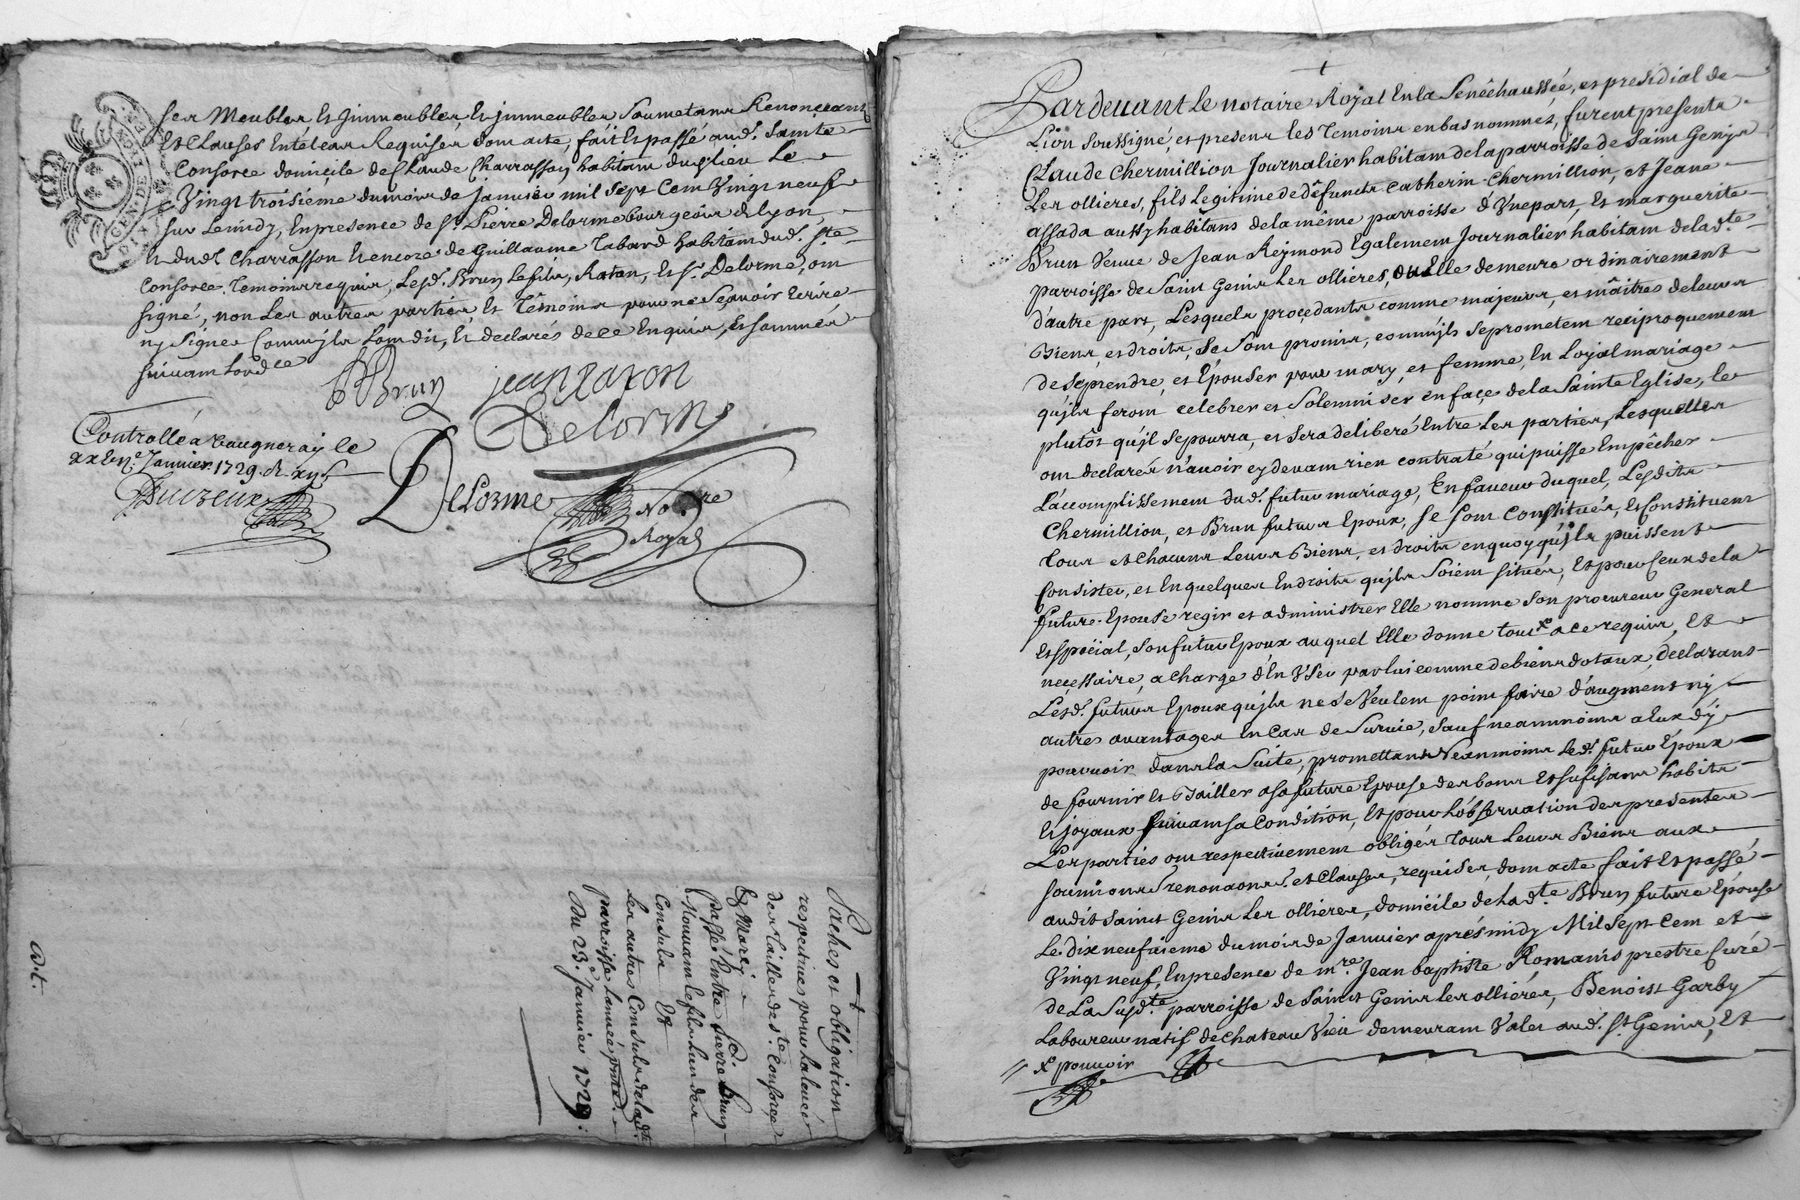 ses Meubles et Jmmeubles et jmmeubles Soumetans Renonceans
Et Clauses Entetes Requises dom acte, fait Et passé aud. Sainte
Consorce domicile de Claude Charrasson habitam dud. lieu Le
Vingt troisieme du mois de janvier mil Sept Cem Vingt neuf
sur Lemidy, En presence de S.r Pierre Delorme bourgeois de Lyon,
Et dud.t Charrasson Et encore de Guillaume Tabard habitam dud. S.te
Consorce. Temoins requis, Lesd. Brun Lesfils, Ratan, Et S.r Delorme, om
signé, non Les autres parties Et Temoins pour ne Sçavoir Ecrire
ny Signer Comm'jls L'om dit, Et declarés de ce Enquis, et sommés
suivam Lord.ce
Brun
jean ratton
Delorme
Controllé a Vaugneray le
Janvier 1729. R.
Delorme
No.re
Royal
GEN. DE LYON
DIX
Taches et obligation
respectives pour la levée
des tailles de S.te Consorce
Et Marcy
passé Entre S.r Pierre Brun
Consuls Et
Les autres Consuls de lad.te
parroisse Lannée
Du 23.e Janvier 1729.
Pardevant Le notaire Royal En la Senêchaussée, et presidial de
Lion soussigné, et presens les Temoins en bas nommés, furent presents
Claude Chermillion Journalier habitam de la parroisse de Saint Genis
Les ollieres, fils Legitime de défuncts Catherin Chermillion, et Jeane
assada aussy habitans de la même parroisse d'Vne part, Et marguerite
Brun Veuve de Jean Reymond Egalemem Journalier habitam de la d.te
parroisse de Saint Genis Les ollieres, ou Elle demeure ordinairement
d'autre part, Lesquels procedants comme majeurs, et maîtres de leurs
Biens, et droits, Se Som promis, comm'jls se prometem reciproquement
de se prendre, et Epouser pour mary, et femme, En Loyal mariage
qu'jls ferom celebrer et Solemniser en face de la Sainte Eglise, le
plutôt qu'jl se pourra, et sera deliberé Entre Les parties, Lesquelles
om declarés n'avoir cy devam rien contraté qui puisse Empêcher
L'accomplissemem dud. futur mariage, En faveur duquel, Lesdits
Chermillion, et Brun futurs Epoux, se som Constitués, Et Constituent
tous et chacuns Leurs Biens, et droits en quoy qu'jls puissent
Consister, et En quelques Endroits qu'jls Soiem situés, Et pour Ceux de la
future Epouse regir et administrer Elle nomme son procureur General
Et special, Son futur Epoux auquel Elle donne tout x a ce requis, Et
necessaire, a charge d'En Vser par lui comme de biens dotaux, declarans
Lesd. futurs Epoux qu'jls ne se Veulem poim faire d'augment ny
autres avantages En Cas de Survie, sauf neanmoins a Eux d'y
pourvoir dans la Suite, promettans Neanmoins Led. futur Epoux
de fournir Et Bailler a sa future Epouse des bons Et sufisans habits
Et joyaux suivam sa Condition, Et pour L'observation des presentes
Les parties om respectivemem obligés tous Leurs Biens aux
soumions renonaons. et Clauses, requises, dom acte fait Et passé
audit Saint Genis Les ollieres, domicile de La d.te Brun future Epouse
Le dix neufuieme du mois de Janvier aprés midy Mil Sept Cem et
Vingt neuf, En presence de m.re Jean baptiste Romanis prestre Curé
de La Susd.te parroisse de Saint Genis Les ollieres, Benoist Garby
Laboureur natif de Chateau Vieu demeuram Valet aud. St Genis, Et
x pouvoir